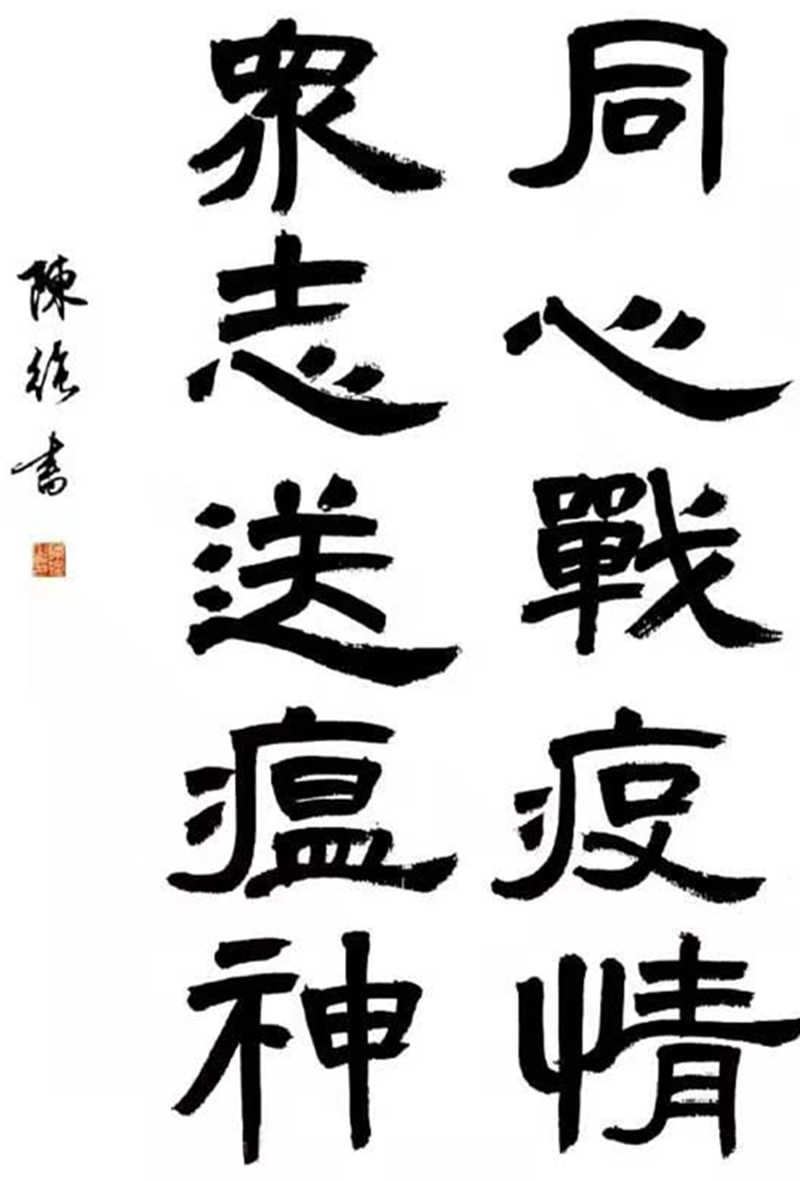 同心戰疫情
眾志送瘟神
陳強書